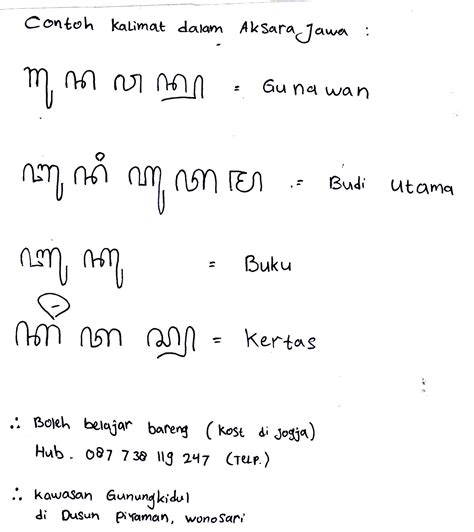 Contoh Kalimat dalam Aksara Jawa :
ꦒꦸꦤꦮꦤ꧀ = Gunawan
ꦧꦸꦢꦶꦲꦸꦠꦩ = Budi Utama
ꦧꦸꦏꦸ = Buku
ꦏꦼꦂꦠꦱ꧀ = Kertas
∴ Boleh belajar bareng (Kost di Jogja)
Hub. 087 738 119 247 (TELP.)
∴ Kawasan Gunungkidul
di Dusun Piyaman, Wonosari